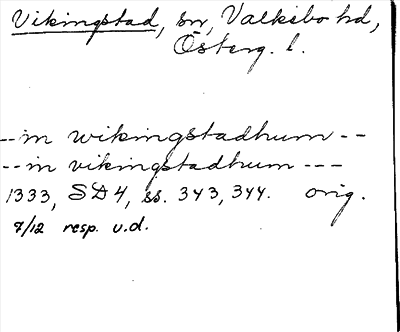 Vikingstad, sn, Valkebo hd,
Österg. l.
--in wikingstadhum--
--in vikingstadhum---
1333, SD4, ss. 343, 344. orig.
7/12 resp. u.d.